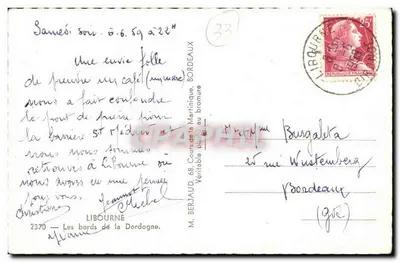 Samedi soir 6.6.59 à 22h
Une envie folle
de prendre un café
nous a fait confondre
le pont de pierre pour
la barrière St Médard
nous nous sommes
retrouvés à Libourne où
nous avons eu une pensée
pour vous.
Christiane
Jeannot
Michel
Yvonne
LIBOURNE
2370 — Les bords de la Dordogne.
M. BERJAUD, 68, Cours de la Martinique, BORDEAUX
Véritable au bromure
33
LIBOURNE
25F
Burgaleta
25 rue Wustemberg
Bordeaux
(Gde)